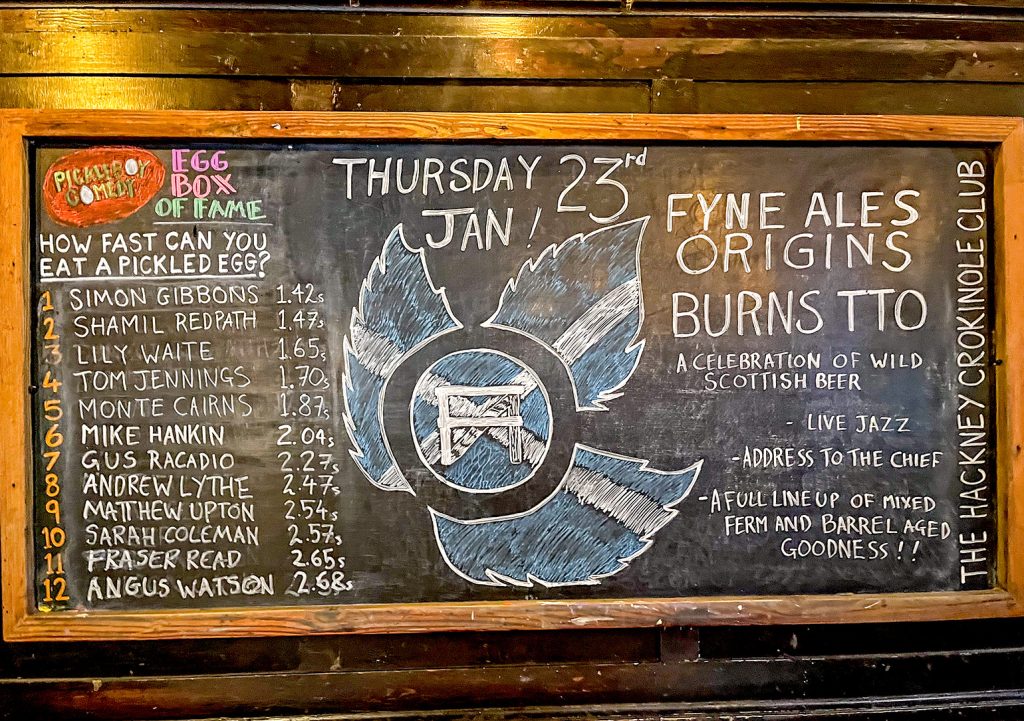 PICKLEBOY
COMEDY
EGG
BOX
OF FAME
HOW FAST CAN YOU
EAT A PICKLED EGG?
1 SIMON GIBBONS 1.42s
2 SHAMIL REDPATH 1.47s
3 LILY WAITE 1.65s
4 TOM JENNINGS 1.70s
5 MONTE CAIRNS 1.87s
6 MIKE HANKIN 2.04s
7 GUS RACADIO 2.27s
8 ANDREW LYTHE 2.47s
9 MATTHEW UPTON 2.54s
10 SARAH COLEMAN 2.57s
11 FRASER READ 2.65s
12 ANGUS WATSON 2.68s
THURSDAY 23rd
JAN!
FYNE ALES
ORIGINS
BURNS TTO
A CELEBRATION OF WILD
SCOTTISH BEER
- LIVE JAZZ
-ADDRESS TO THE CHIEF
-A FULL LINE UP OF MIXED
FERM AND BARREL AGED
GOODNESS!!
THE HACKNEY CROKINOLE CLUB